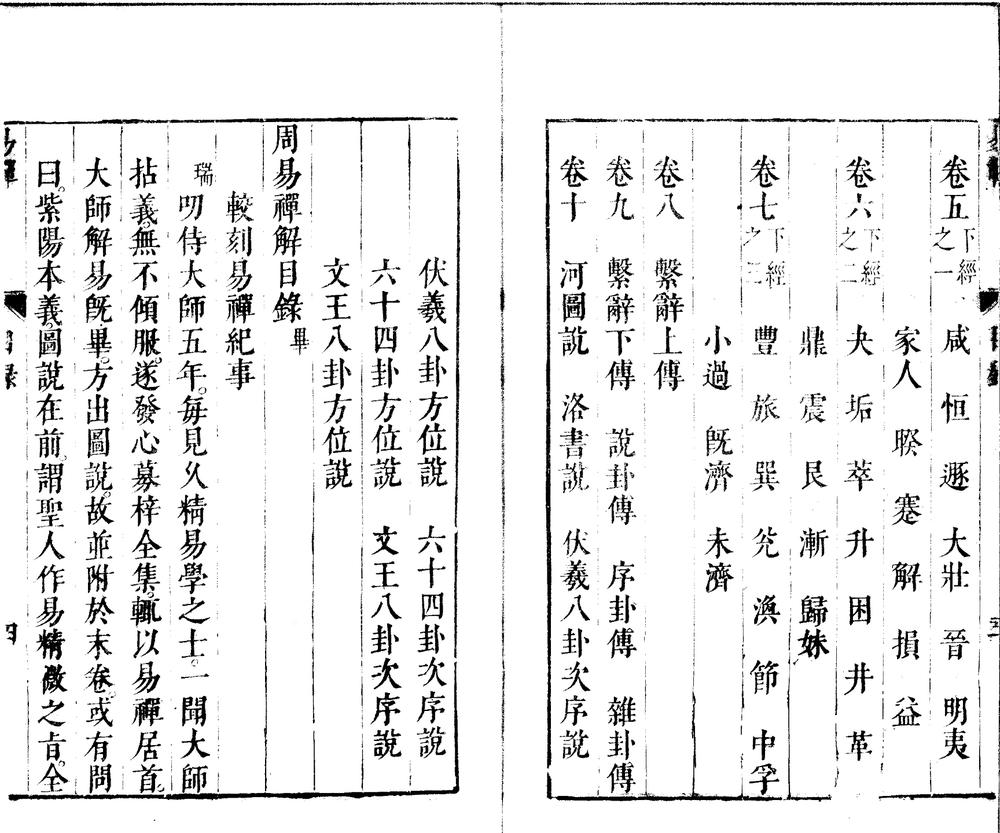 卷五下經之一 咸 恒 遯 大壯 晉 明夷
家人 睽 蹇 解 損 益
卷六下經之二 夬 垢 萃 升 困 井 革
鼎 震 艮 漸 歸妹
卷七下經之三 豐 旅 巽 兊 渙 節 中孚
小過 旣濟 未濟
卷八 繫辭上傳
卷九 繫辭下傳 說卦傳 序卦傳 雜卦傳
卷十 河圖說 洛書說 伏羲八卦次序說
伏羲八卦方位說 六十四卦次序說
六十四卦方位說 文王八卦次序說
文王八卦方位說
周易禪解目錄 畢
較刻易禪紀事
瑞叨侍大師五年。每見久精易學之士。一聞大師
拈義。無不傾服。遂發心募梓全集。輒以易禪居首。
大師解易旣畢。方出圖說。故並附於末卷。或有問
曰。紫陽本義。圖說在前。謂聖人作易精微之旨。全
易禪 目錄 四